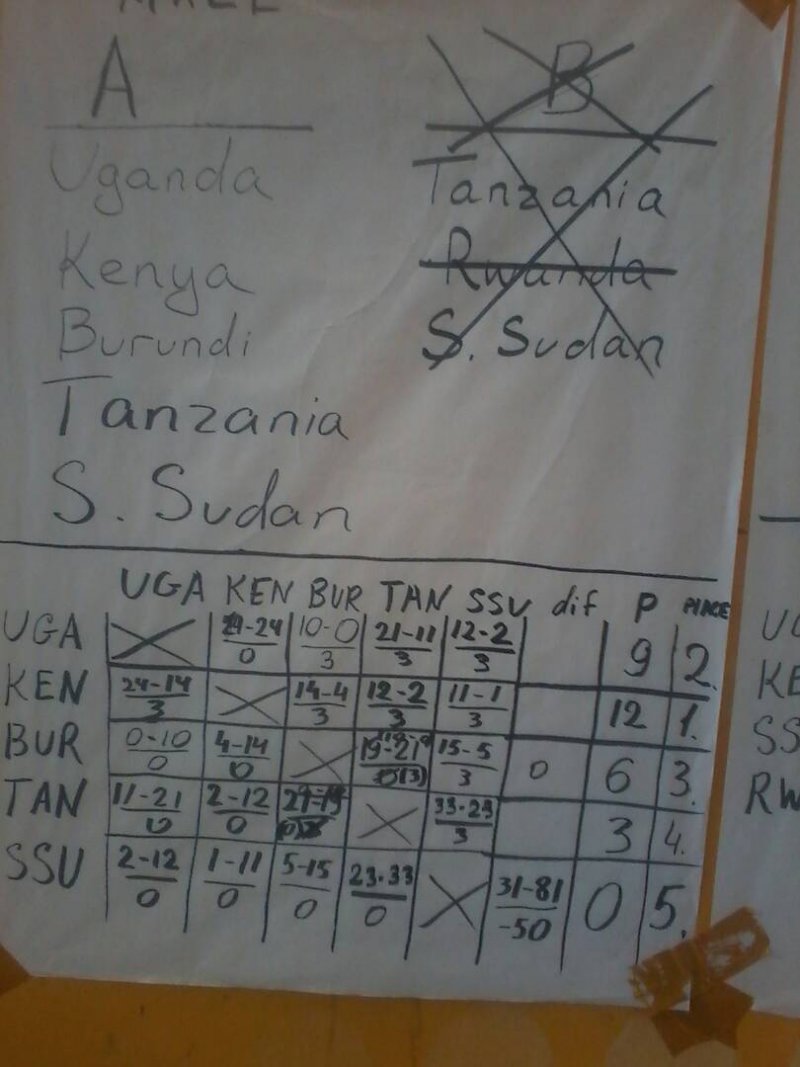 A
Uganda
Kenya
Burundi
Tanzania
S. Sudan
B
Tanzania
Rwanda
S. Sudan
UGA KEN BUR TAN SSU dif P PLACE
UGA 10-0 3 21-11 3 12-2 3 9 2.
KEN 24-14 3 14-4 3 12-2 3 11-1 3 12 1.
BUR 0-10 0 4-14 0 19-21 15-5 3 0 6 3.
TAN 11-21 0 2-12 0 33-23 3 3 4.
SSU 2-12 0 1-11 0 5-15 0 23-33 0 31-81 -50 0 5.
KE
SS
RW